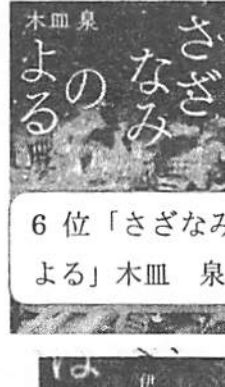 木皿 泉
さざなみ
のよる
6 位「さざなみ
よる」木皿　泉
は
伊